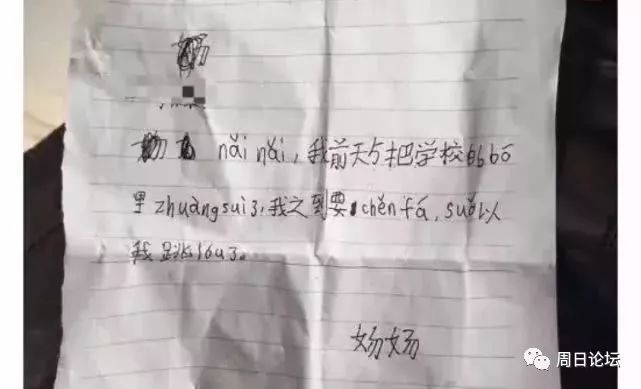 nǎi nǎi，我前天与把学校的bō
里zhuàng suì了，我之到要chěn fá，suǒ以
我跳lóu了。
周日论坛